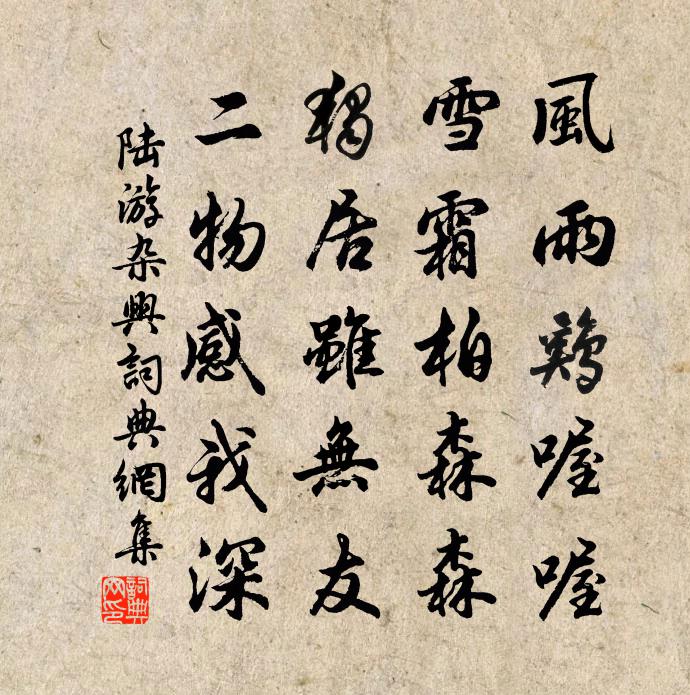 風雨鷄喔喔
雪霜柏森森
獨居雖無友
二物感我深
陸游杂興詞典網集
詞典网印